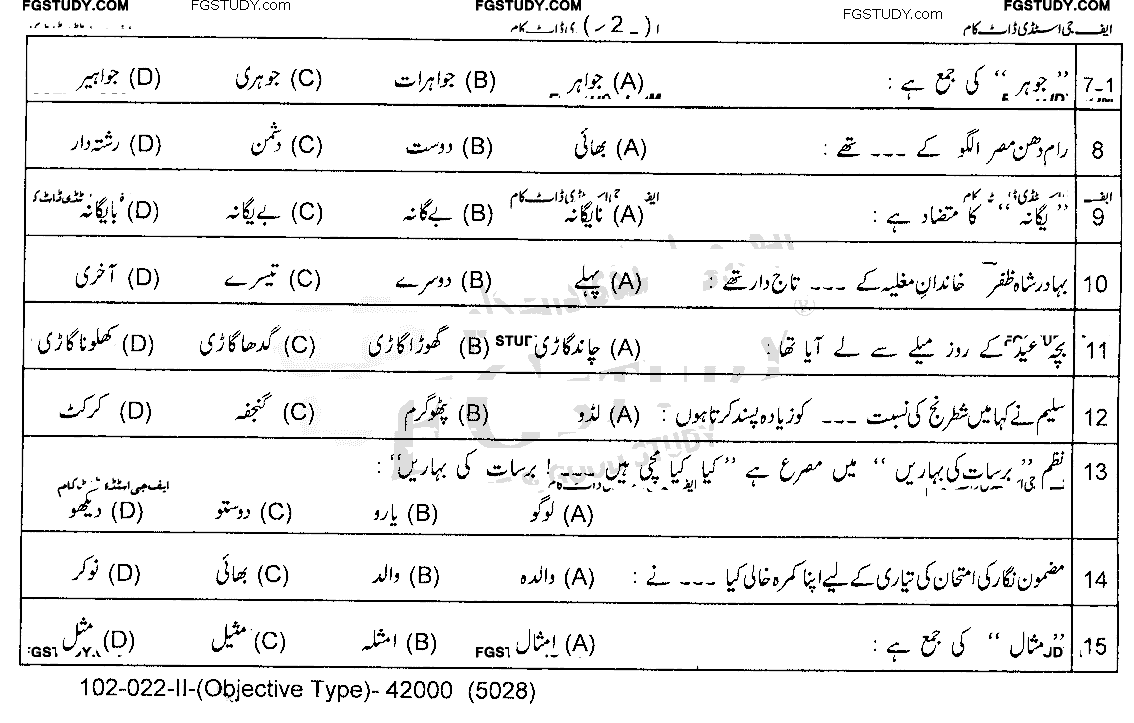 FGSTUDY.COM FGSTUDY.com FGSTUDY.COM FGSTUDY.com FGSTUDY.COM
ایف جی اسٹڈی ڈاٹ کام (2)
7-1 ” جوہر “ کی جمع ہے : (A) جواہر (B) جواہرات (C) جوہری (D) جواہیر
8 رام دھن مصر الگو کے ـ ـ ـ تھے : (A) بھائی (B) دوست (C) دشمن (D) رشتہ دار
9 ” یگانہ “ کا متضاد ہے : (A) نایگانہ (B) بے گانہ (C) بے یگانہ (D) بایگانہ
10 بہادر شاہ ظفر خاندانِ مغلیہ کے ـ ـ ـ تاج دار تھے : (A) پہلے (B) دوسرے (C) تیسرے (D) آخری
11 بچہ عید کے روز میلے سے لے آیا تھا : (A) چاند گاڑی (B) گھوڑا گاڑی (C) گدھا گاڑی (D) کھلونا گاڑی
12 سلیم نے کہا میں شطرنج کی نسبت ـ ـ ـ کو زیادہ پسند کرتا ہوں : (A) لڈو (B) پٹھو گرم (C) گنجفہ (D) کرکٹ
13 نظم ” برسات کی بہاریں “ میں مصرع ہے ” کیا کیا مچی ہیں ـ ـ ـ ! برسات کی بہاریں“ :
(A) لوگو (B) یارو (C) دوستو (D) دیکھو
14 مضمون نگار کی امتحان کی تیاری کے لیے اپنا کمرہ خالی کیا ـ ـ ـ نے : (A) والدہ (B) والد (C) بھائی (D) نوکر
15 ” مثال “ کی جمع ہے : (A) امثال (B) امثلہ (C) مثیل (D) مثل
102-022-II-(Objective Type)- 42000 (5028)